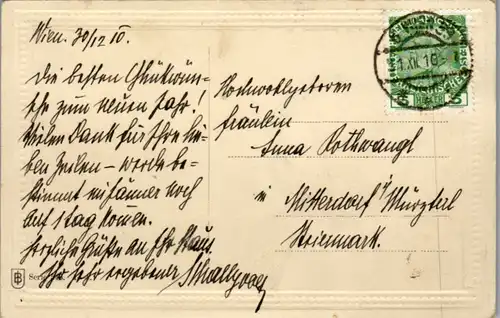 Wien. 30/12 10.
Die besten Glückwün-
sche zum neuen Jahr!
Vielen Dank für Ihre lie-
ben Zeilen – werde be-
stimmt im Jänner noch
auf 1 Tag komen.
Herzliche Grüße an Ihr Haus
Ihr sehr ergebener
Hochwohlgeboren
Fräulein
Anna Rothwangl
in Mitterdorf i/ Mürztal
Steiermark.
5 5
XII. 10
BR Ser